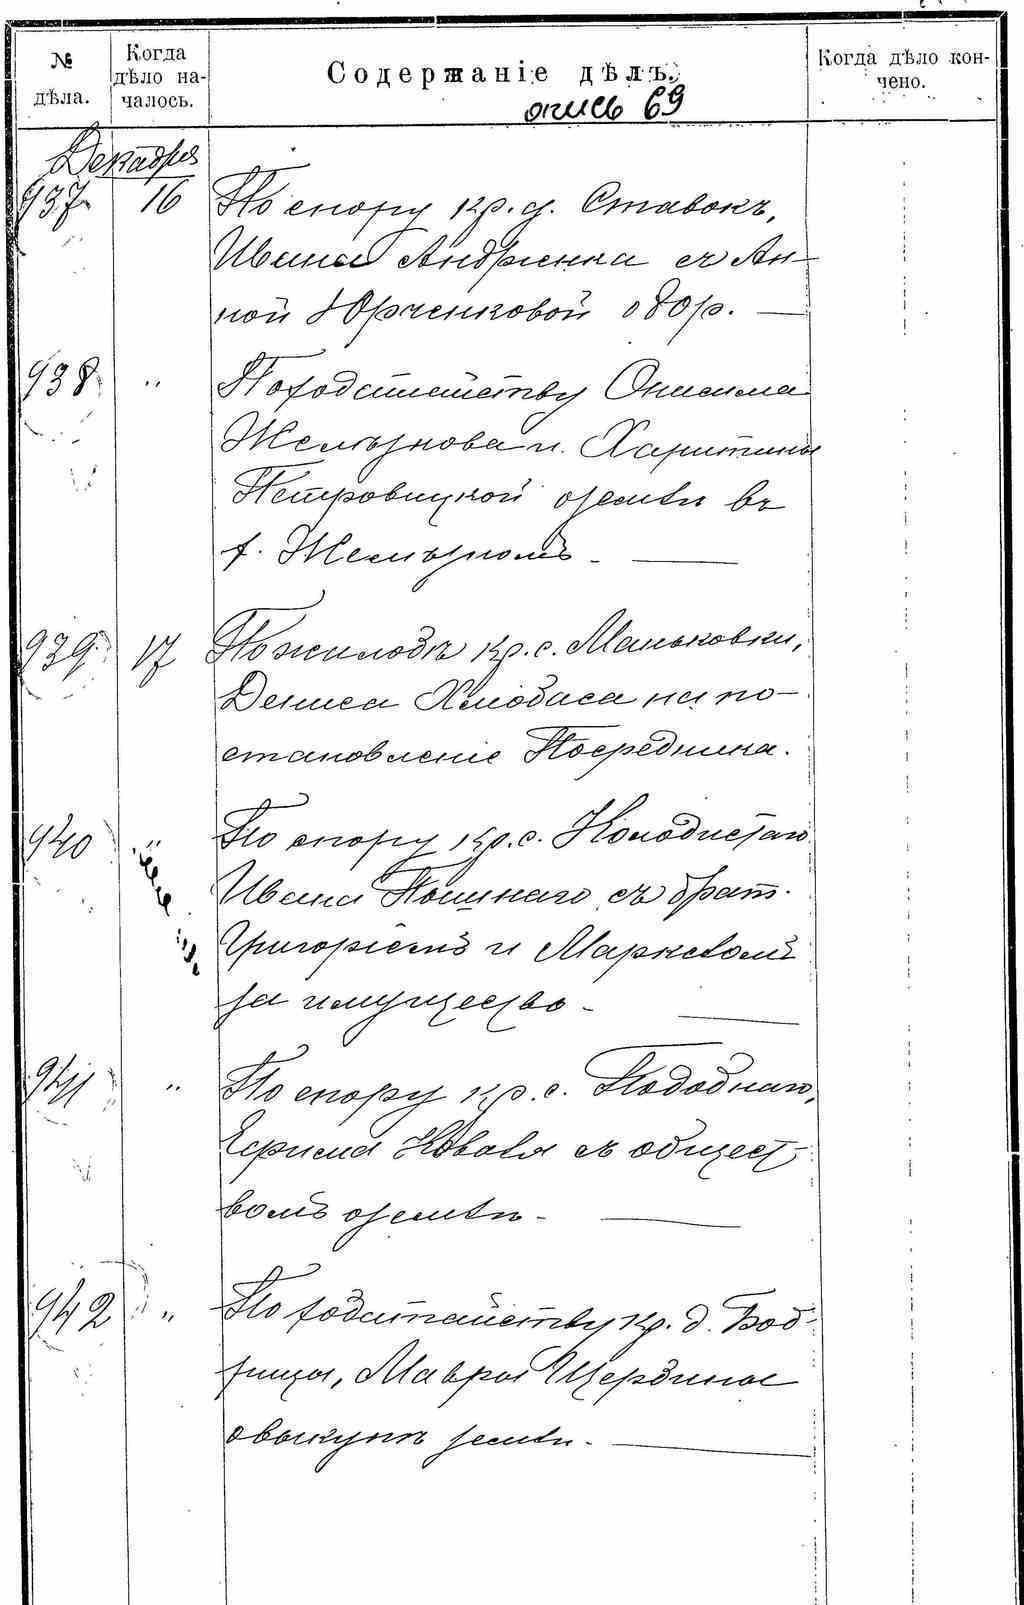 № дѣла.
Когда дѣло на-
чалось.
Содержаніе дѣлъ.
Когда дѣло кон-
чено.
опись 69
Декабря
937 16 По спору кр. д. Ставокъ,
Ивана Андріенка съ Ан-
ной Юрченковой о двор.
938 " По ходатайству Онисима
Желѣзнова и Харитины
Петровицкой о землѣ въ
г. Желѣзномъ
939 17 По жалобѣ кр. с. Маньковки,
Дениса Хлюбаса на по-
становленіе Посредника.
940 " По спору кр. с. Колодистаго
Ивана съ брат.
Григоріемъ и
за имущество
941 " По спору кр. с. Подобнаго,
Ефима Коваля съ общест-
вомъ о землѣ
942 " По ходатайству кр. д. Бод-
Мавры Щербины
о выкупѣ земли